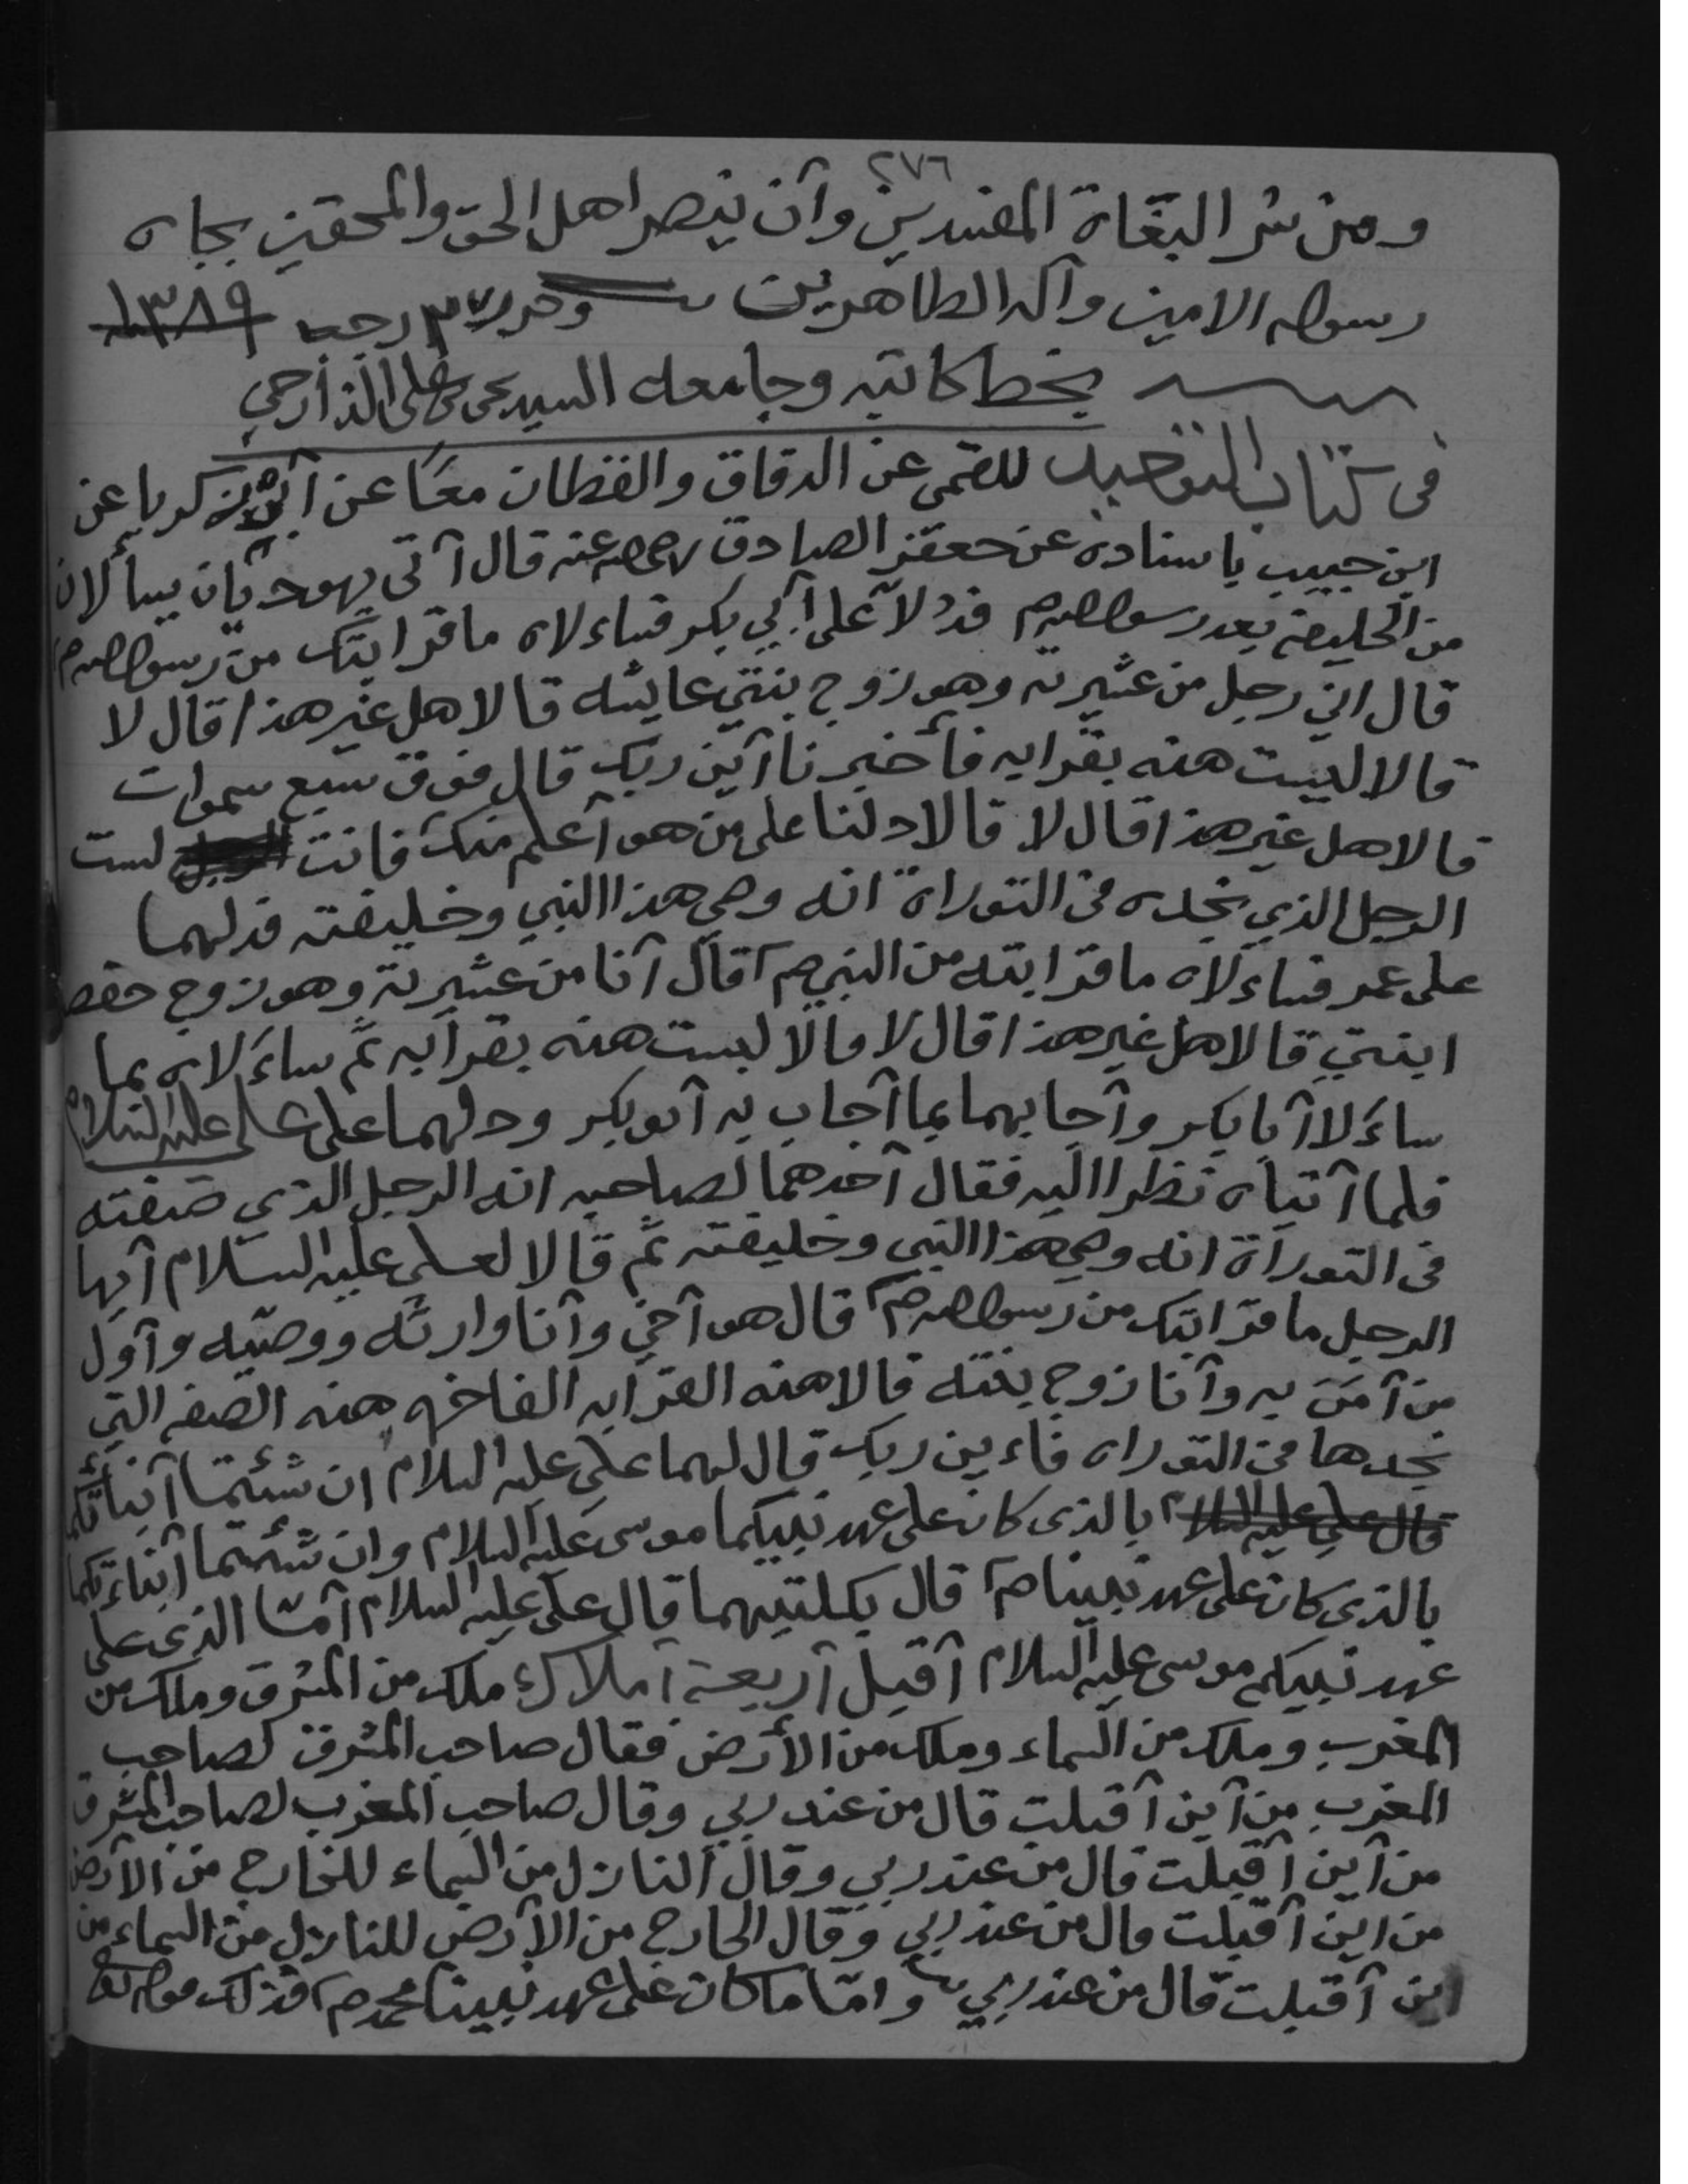 ٢٧٦
ومن شر البغاة المفسدين وآن ينصر اهل الحق والمحقين بجاه
رسوله الامين وآله الطاهرين وحرر ٣ رجب ١٣٨٩
بخط كاتبه وجامعه السيد يحى علي الذارحي
فى كتاب التوحيد للقمى عن الدقاق والقطان معًا عن ابن زكريا عن
ابن حبيب باسناده عن جعفر الصادق رضي الله عنه قال آتى يهوديان يسألان
من الخليفة بعد رسول الله صم فدُلا على آبي بكر فساءلاه ما قرابتك من رسول الله صم
قال اني رجل من عشيرته وهو زوج بنتي عايشه قالا هل غير هذا قال لا
قالا ليست هذه بقرابه فأخبرنا آين ربك قال فوق سبع سموات
قالا هل غير هذا قال لا قالا دلنا على من هو آعلم منك فانت لست
الرجل الذي نجده فى التوراة انه وصي هذا النبي وخليفته فدلهما
على عمر فساءلاه ما قرابته من النبي صم قال آنا من عشيرته وهو زوج حفصه
ابنتي قالا هل غير هذا قال لا قالا ليست هذه بقرابه ثم ساءلاه بما
ساءلا آبا بكر وآجابهما بما آجاب به آبو بكر ودلهما على علي عليه السلام
فلما آتياه نظرا اليه فقال آحدهما لصاحبه انه الرجل الذي صفته
فى التوراة انه وصي هذا النبي وخليفته ثم قالا لعلي عليه السلام آيها
الرجل ما قرابتك من رسول الله صم قال هو آخي وآنا وارثه ووصيه وآول
من آمن به وآنا زوج بنته قالا هذه القرابه الفاخره هذه الصفه التي
نجدها فى التوراه فاءين ربك قال لهما علي عليه السلام ان شئتما آنبأتكما
قال علي عليه السلام بالذى كان على عهد نبيكما موسى عليه السلام وان شئتما آنباءتكما
بالذى كان على عهد نبينا صم قال بكلتيهما قال علي عليه السلام آمّا الذى على
عهد نبيكم موسى عليه السلام آقبل آربعة آملاك ملك من المشرق وملك من
المغرب وملك من السماء وملك من الأرض فقال صاحب المشرق لصاحب
المغرب من آين آقبلت قال من عند ربي وقال صاحب المغرب لصاحب المشرق
من آين آقبلت قال من عند ربي وقال النازل من السماء للخارج من الأرض
من اين آقبلت قال من عند ربي وقال الخارج من الأرض للنازل من السماء من
اين آقبلت قال من عند ربي وامّا ما كان على عهد نبينا محمد صم فذلك قوله تعالى